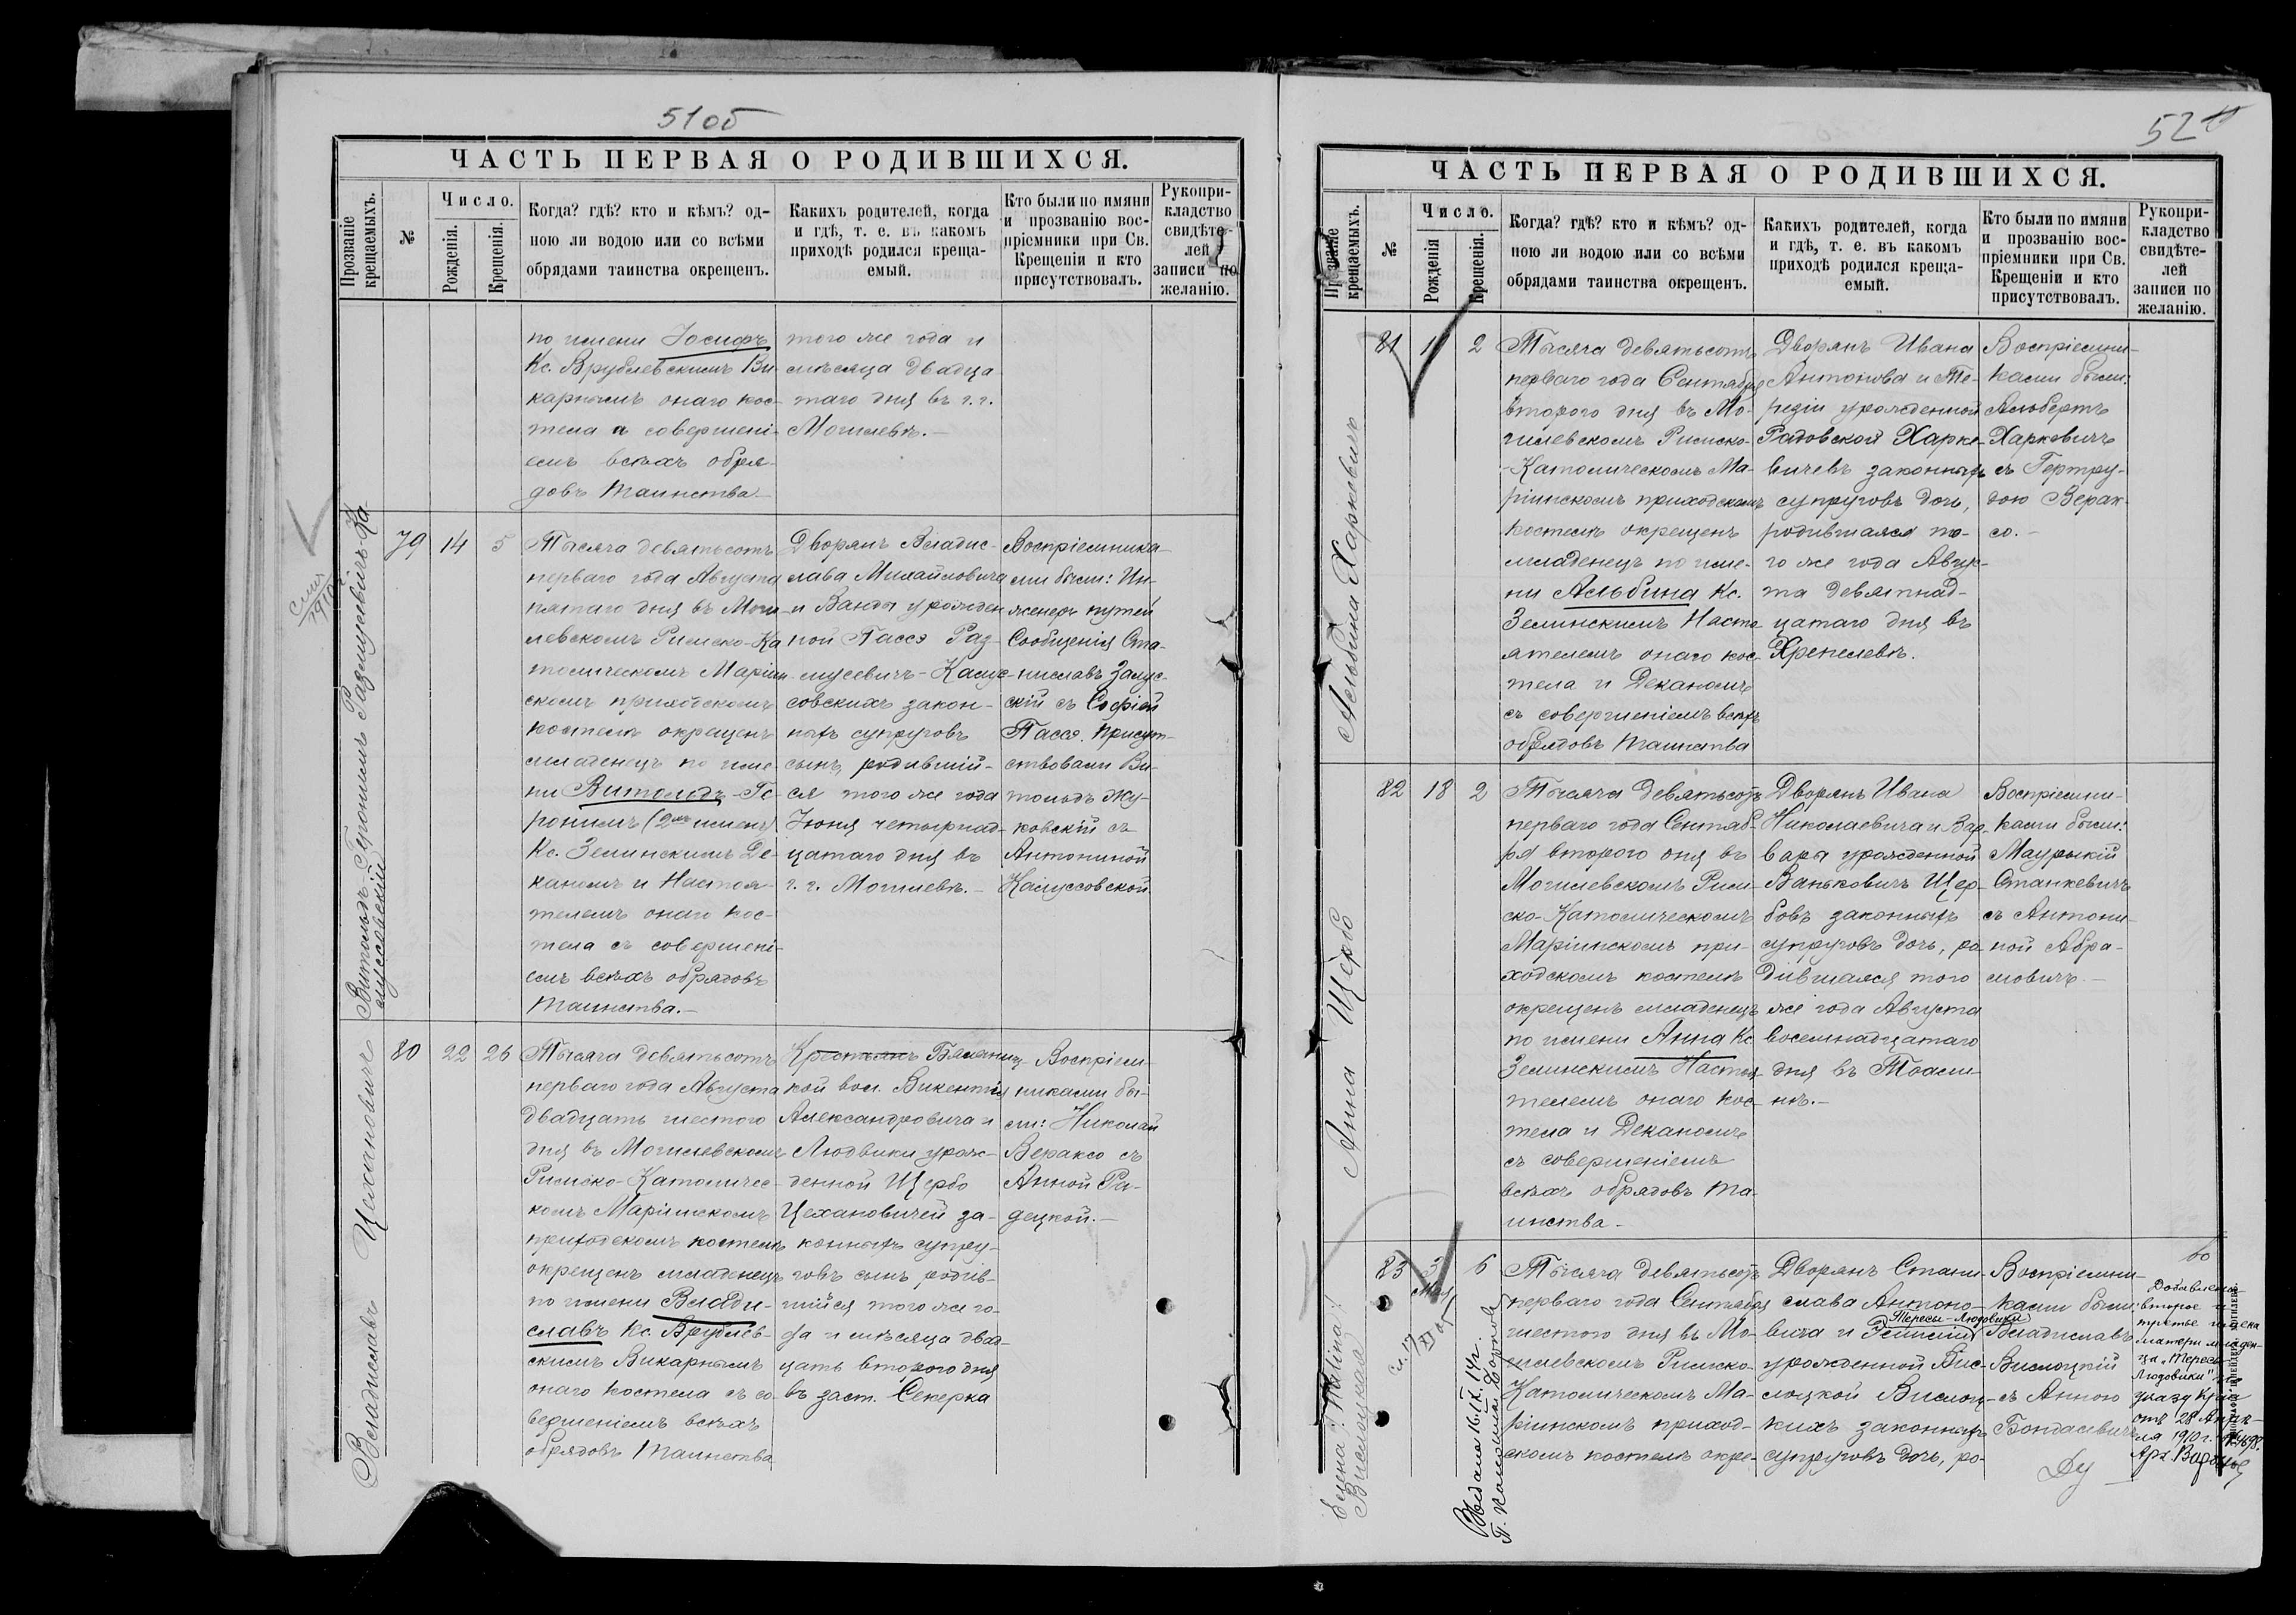 51 об
ЧАСТЬ ПЕРВАЯ О РОДИВШИХСЯ.
Прозваніе
крещаемыхъ.
№
Число.
Рожденія.
Крещенія.
Когда? гдѣ? кто и кѣмъ? од-
ною ли водою или со всѣми
обрядами таинства окрещенъ.
Какихъ родителей, когда
и гдѣ, т. е. въ какомъ
приходѣ родился креща-
емый.
Кто были по имяни
и прозванію вос-
пріемники при Св.
Крещеніи и кто
присутствовалъ.
Рукопри-
кладство
свидѣте-
лей
записи по
желанію.
по имени Іосифъ
Кс. Врублевскимъ Ви-
карнымъ онаго кос-
тела совершені-
емъ всѣхъ обря-
довъ таинства.-
того же года и
мѣсяца двадца
таго дня въ г. г.
Могилевѣ.-
Витольдъ-Геронимъ Размусевичъ-Ка-
79
14
5
Тысяча девятьсотъ
перваго года Августа
пятаго дня въ Моги-
левскомъ Римско-Ка
толическомъ Маріин-
скомъ приходскомъ
костелѣ окрещенъ
младенецъ по име-
ни Витольдъ-Ге-
ронимъ (2хъ именъ)
Кс. Землинскимъ Де-
каномъ и Настоя-
телемъ онаго кос-
тела съ совершені-
емъ всѣхъ обрядовъ
таинства.-
Дворянъ Владис-
лава Михайловича
и Ванды урожден
ной Пассэ Раз-
мусевичъ-Калус-
совскихъ закон-
ныхъ супруговъ
сынъ, родившій-
ся того же года
Іюня четырнад-
цатаго дня въ
г. г. Могилевѣ.-
Воспріемника-
ми были: Ин-
женеръ путей
Сообщенія Ста-
ниславъ Залус-
скій съ Софіей
Пассэ. Присут-
ствовали Ви-
тольдъ Жу-
ковскій съ
Антониной
Калуссовской
Владиславъ Цехановичъ
80
22
26
Тысяча девятьсотъ
перваго года Августа
двадцать шестого
дня въ Могилевскомъ
Римско-Католичес-
комъ Маріинскомъ
приходскомъ костелѣ
окрещенъ младенецъ
по имени Влади-
славъ Кс. Врублев-
скимъ Викарнымъ
онаго костела съ со-
вершеніемъ всѣхъ
обрядовъ таинства
Крестьянъ Бялыниц-
кой вол. Викентія
Александровича и
Людвики урож-
денной Щербо
Цехановичей за-
конныхъ супру-
говъ сынъ родив-
шійся того же го-
да и мѣсяца двад-
цать второго дня
въ заст. Секерка
Воспріем-
никами бы-
ли: Николай
Вераксо съ
Анной Ра-
децкой.-
52
ЧАСТЬ ПЕРВАЯ О РОДИВШИХСЯ.
Прозваніе
крещаемыхъ.
№
Число.
Рожденія
Крещенія.
Когда? гдѣ? кто и кѣмъ? од-
ною ли водою или со всѣми
обрядами таинства окрещенъ.
Какихъ родителей, когда
и гдѣ, т. е. въ какомъ
приходѣ родился креща-
емый.
Кто были по имяни
и прозванію вос-
пріемники при Св.
Крещеніи и кто
присутствовалъ.
Рукопри-
кладство
свидѣте-
лей
записи по
желанію.
Альбина Харкевичъ
81
2
Тысяча девятьсотъ
перваго года Сентября
второго дня въ Мо-
гилевскомъ Римско-
-Католическомъ Ма-
ріинскомъ приходскомъ
костелѣ окрещенъ
младенецъ по име-
ни Альбина Кс.
Землинскимъ Насто
ятелемъ онаго кос-
тела и Деканомъ
съ совершеніемъ всѣхъ
обрядовъ таинства
Дворянъ Ивана
Антонова и Те-
резіи урожденной
Радовской Харке-
вичевъ законныхъ
супруговъ дочь,
родившаяся то-
го же года Авгус-
та девятнад-
цатаго дня въ
Хрепелевѣ.
Воспріемни-
ками были:
Альбертъ
Харкевичъ
съ Гертру-
дою Верак-
со.-
Анна Щербо
82
18
2
Тысяча девятьсотъ
перваго года Сентяб-
ря второго дня въ
Могилевскомъ Рим-
ско-Католическомъ
Маріинскомъ при-
ходскомъ костелѣ
окрещенъ младенецъ
по имени Анна Кс
Землинскимъ Настоя-
телемъ онаго кос-
тела и Деканомъ
съ совершеніемъ
всѣхъ обрядовъ та-
инства-
Дворянъ Ивана
Николаевича и Вар-
вары урожденной
Ваньковичъ Щер-
бовъ законныхъ
супруговъ дочь, ро
дившаяся того
же года Августа
восемнадцатаго
дня въ
Воспріемни-
ками были:
Маурыкій
Станкевичъ
съ Антони-
ной Абра-
мовичъ.-
83
3
6
Тысяча девятьсотъ
перваго года Сентября
шестого дня въ Мо-
гилевскомъ Римско-
Католическомъ Ма-
ріинскомъ приход-
скомъ костелѣ окре-
Дворянъ Стани-
слава Антоно-
Тересы-Людовики
вича и
урожденной Вис-
лоцкой Вислоц-
кихъ законныхъ
супруговъ дочь, ро-
Воспріемни-
ками были:
Владиславъ
Вислоцкій
съ Анною
Бондасевичъ
Добавлено
второе и
третье имена
матери младен-
ца "Тереса
Людовики"
указу
отъ 28 Апрѣ-
ля 1910 г.